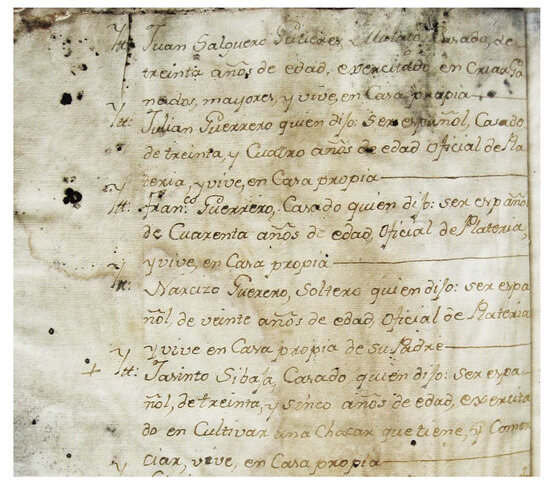 Ytt: Juan Salguero Gutieres Mulato Casado, de
treinta años de edad, exercitado en Criar Ga
nados, mayores, y vive, en Casa propia
Ytt: Julian Guerrero quien dijo: Ser español, Casado
de treinta, y Cuatro años de edad Oficial de Pla
teria, y vive, en Casa propia
Ytt: Fran.co Guerrero, Casado quien dijo: ser español
de Cuarenta años de edad, Oficial de Plateria,
y vive, en Casa propia
Ytt: Narcizo Guerero, Soltero quien dijo: ser espa
ñol, de veinte años de edad Oficial de Plateria
y vive en Casa propia de su Padre
Ytt: Jasinto Sibaja, Casado quien dijo: ser espa
ñol, de treinta, y senco años de edad, exercita
do en Cultivar una Chacar que tiene, y Comer
ciar, vive, en Casa propia